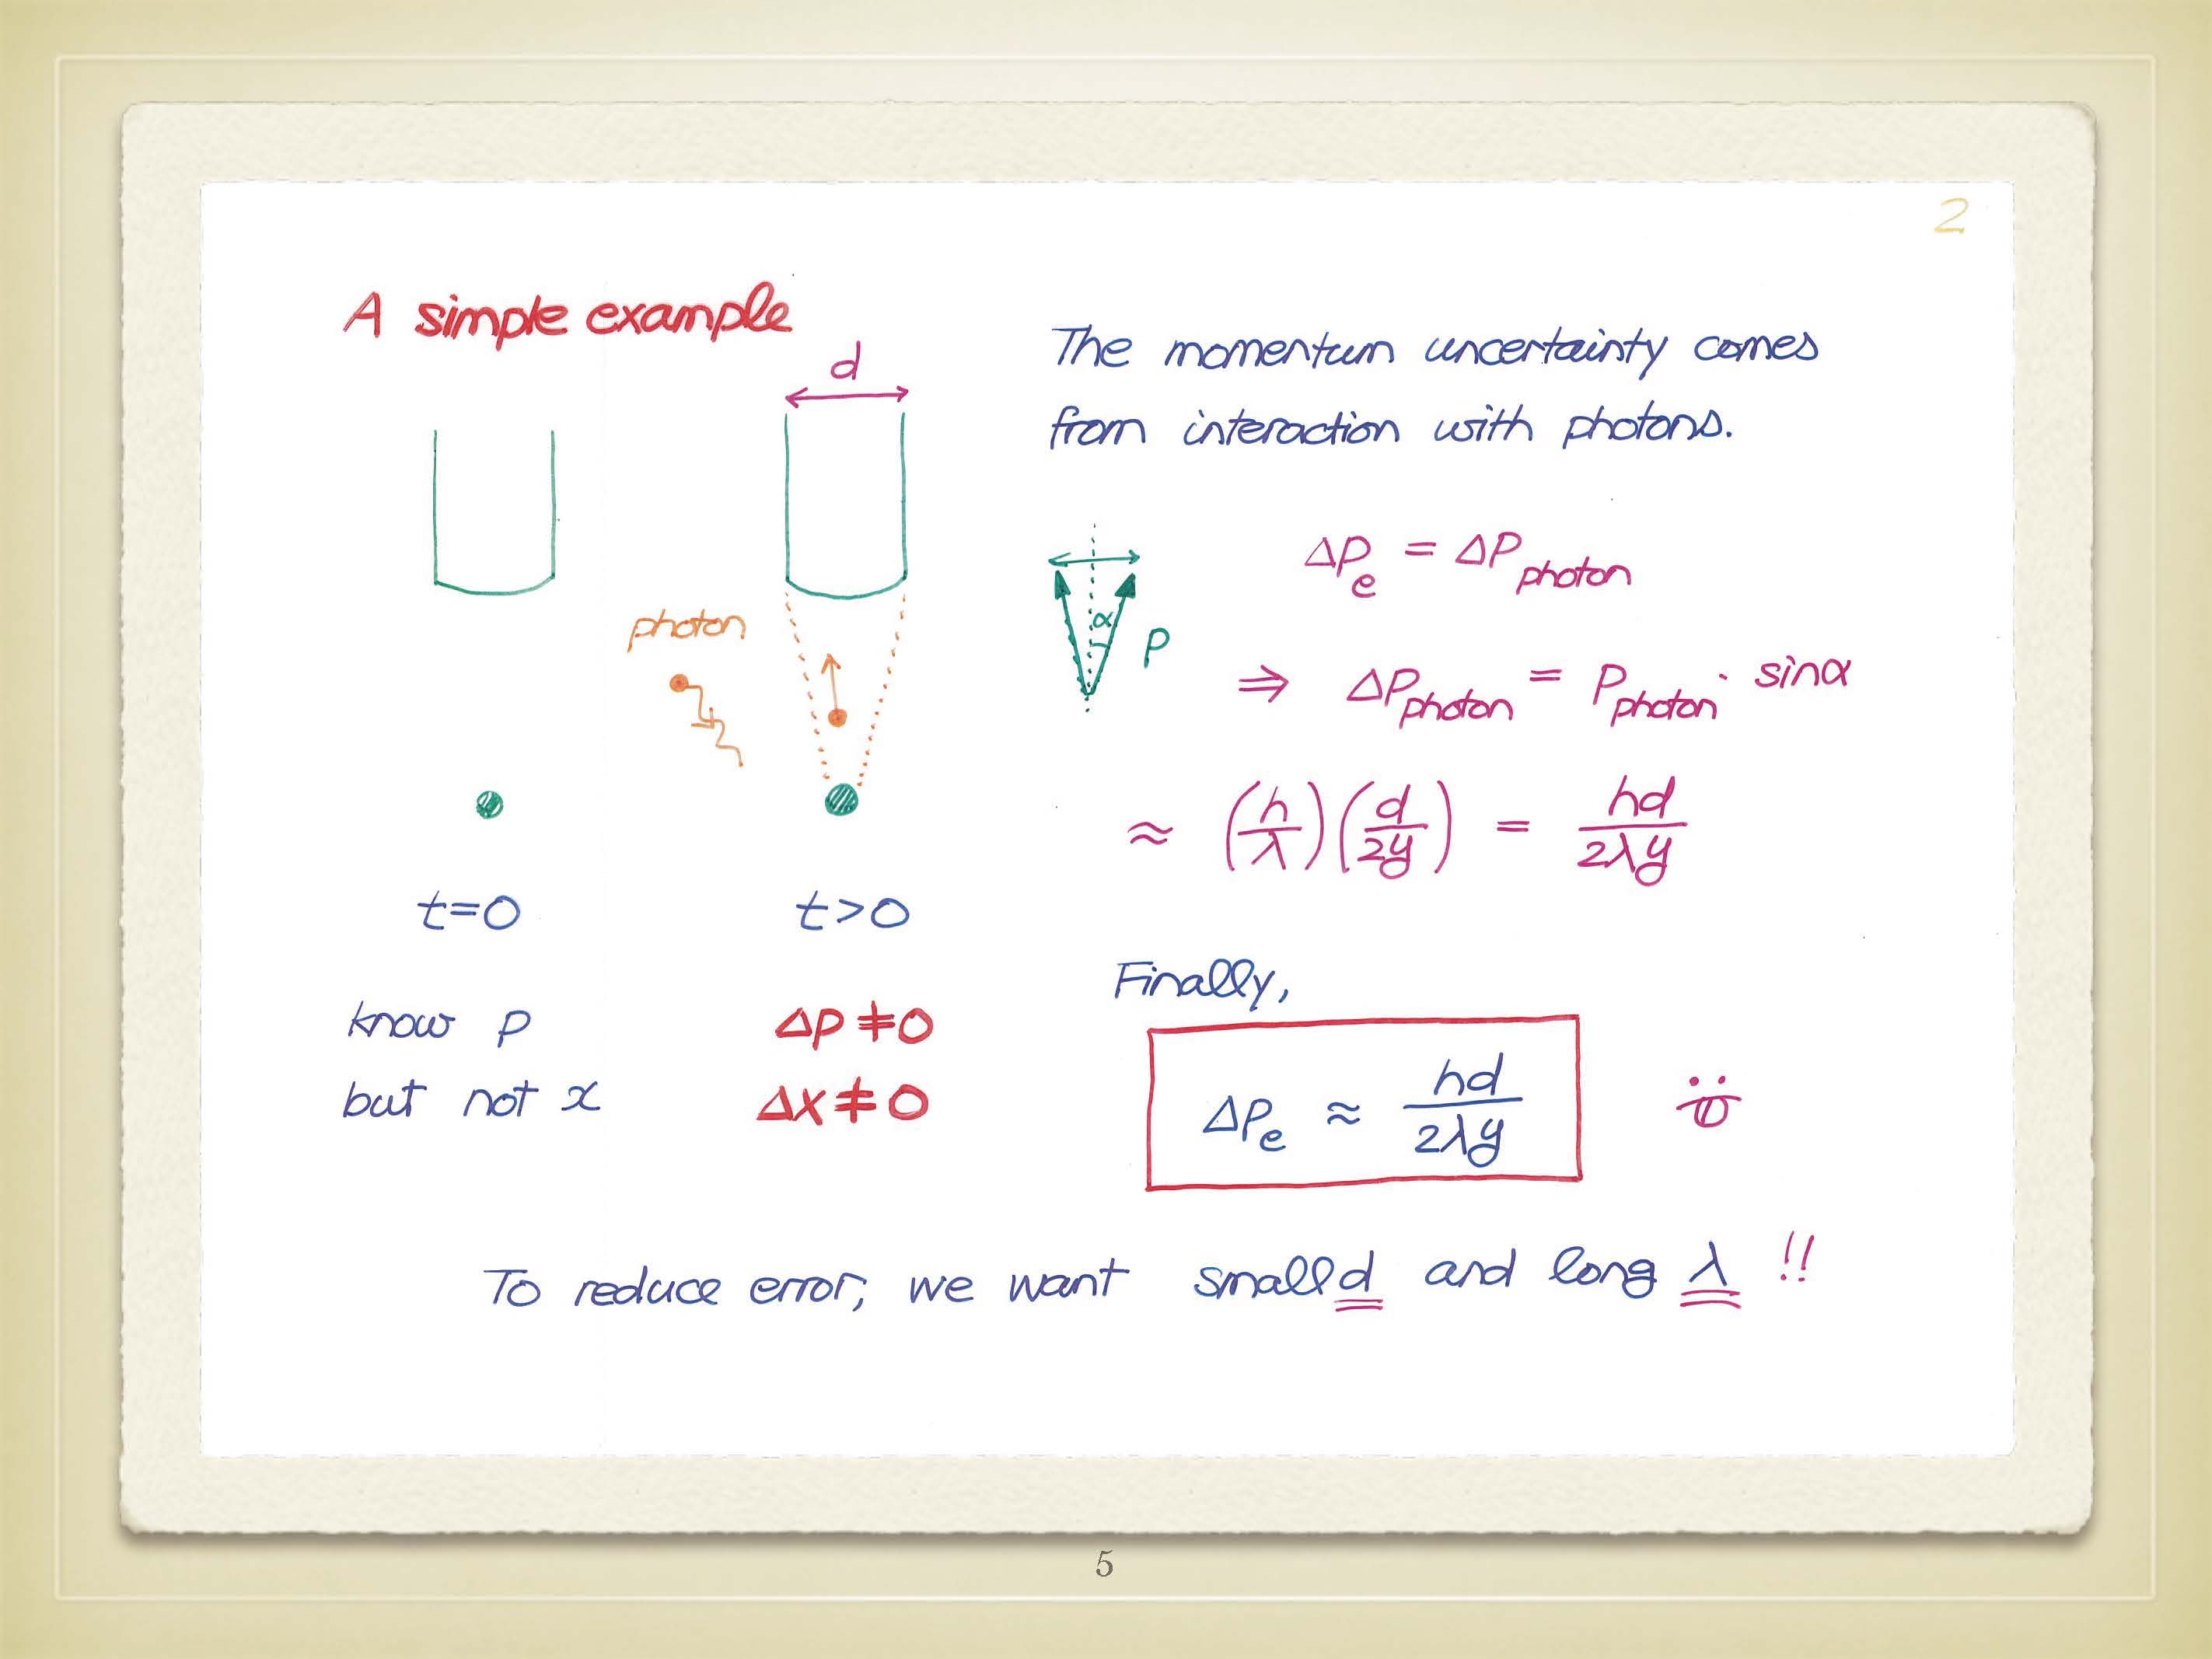 2
A simple example
d
photon
t=0
t>0
know p
but not x
Δp≠0
Δx≠0
The momentum uncertainty comes
from interaction with photons.
α
p
ΔP_e = ΔP_photon
⇒ ΔP_photon = P_photon · sinα
≈ (h/λ)(d/2y) = hd/2λy
Finally,
ΔP_e ≈ hd/2λy
To reduce error, we want small d and long λ !!
5